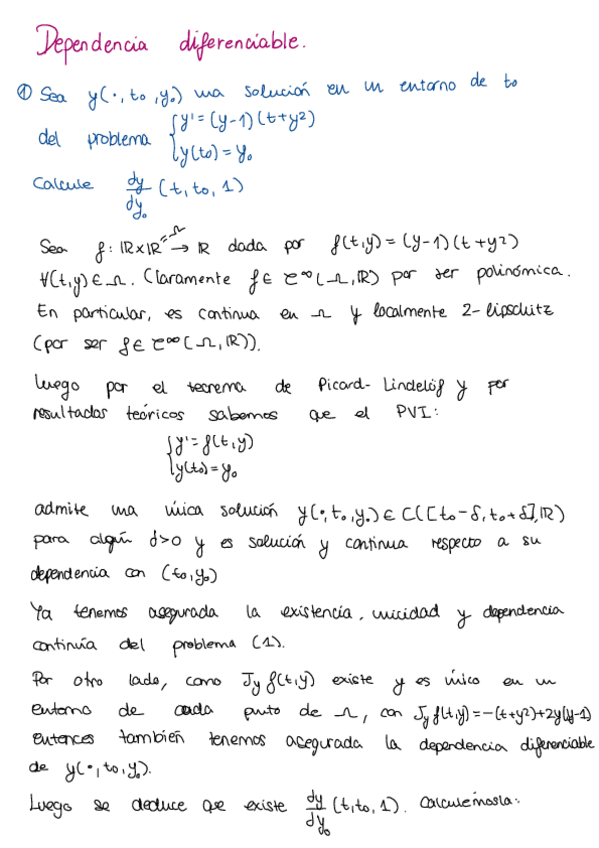 Dependencia diferenciable.
① Sea y(·, to, yo) una solución en un entorno de to
del problema { y' = (y-1)(t+y²)
{ y(to) = yo
Calcule dy/dyo (t, to, 1)
Sea f: ℝxℝ =Ω → ℝ dada por f(t,y) = (y-1)(t+y²)
∀(t,y) ∈ Ω. Claramente f ∈ C^∞(Ω, ℝ) por ser polinómica.
En particular, es continua en Ω y localmente 2-lipschitz
(por ser f ∈ C^∞(Ω, ℝ)).
luego por el teorema de Picard-Lindelöf y por
resultados teóricos sabemos que el PVI:
{ y' = f(t,y)
{ y(to) = yo
admite una única solución y(·, to, yo) ∈ C([to-δ, to+δ], ℝ)
para algún δ>0 y es solución y continua respecto a su
dependencia con (to, yo)
Ya tenemos asegurada la existencia, unicidad y dependencia
continuía del problema (1).
Por otro lado, como Jy f(t,y) existe y es único en un
entorno de cada punto de Ω, con Jy f(t,y) = -(t+y²)+2y(y-1)
entonces también tenemos asegurada la dependencia diferenciable
de y(·, to, yo).
Luego se deduce que existe dy/dyo (t, to, 1). Calculémosla: